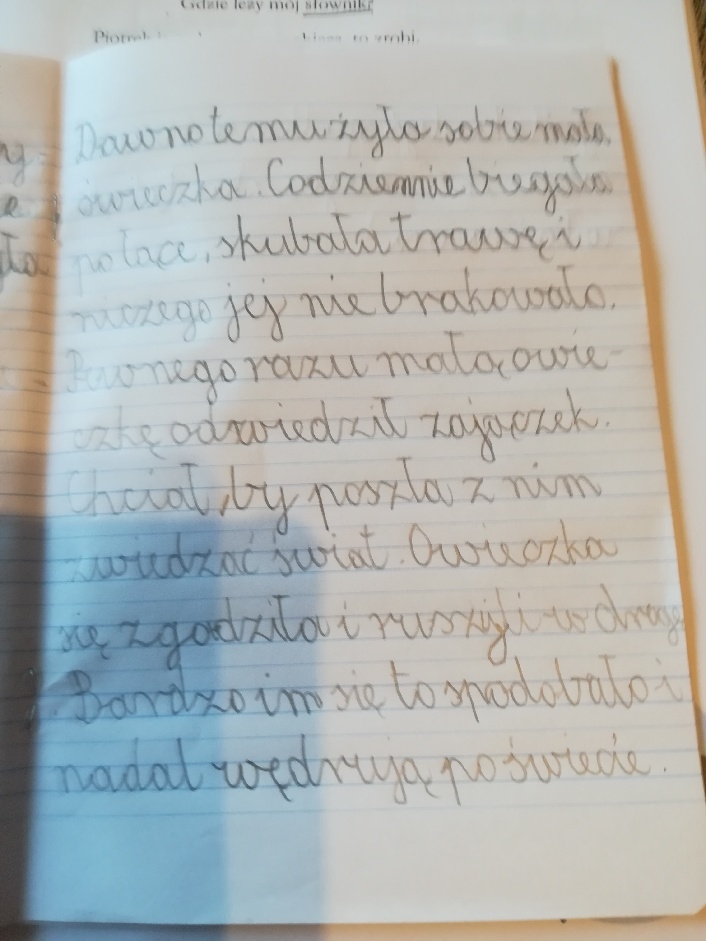 Gdzie leży mój słownik?
Piotrek to zrobi.
Dawno temu żyła sobie mała
owieczka. Codziennie biegała
po łące, skubała trawę i
niczego jej nie brakowało.
Pewnego razu małą owie-
czkę odwiedził zajączek.
Chciał, by poszła z nim
zwiedzać świat. Owieczka
się zgodziła i ruszyli w drogę
Bardzo im się to spodobało i
nadal wędrują po świecie.